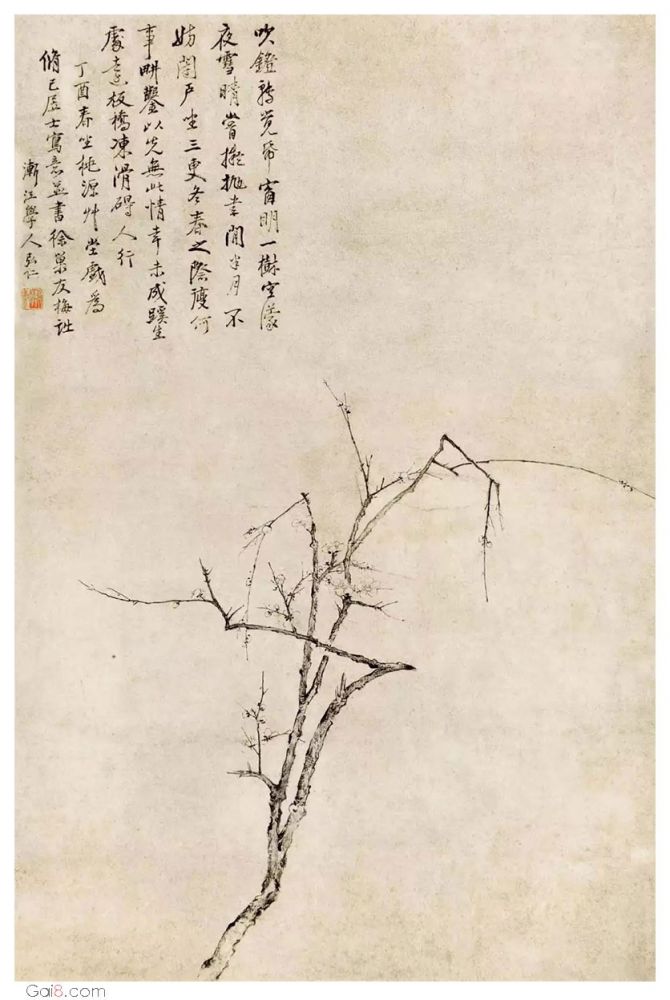 吹鐙覺帋窗明一樹空濛
夜雪晴嘗擬拋書閒半月不
妨戶坐三更冬春之際何
事畊鑿以先無此情幸未成蹊生
處遠板橋凍滑礙人行
丁酉春坐桃源艸堂戲為
脩己居士寫意並書徐巢友梅
漸江學人弘仁
Gai8.com